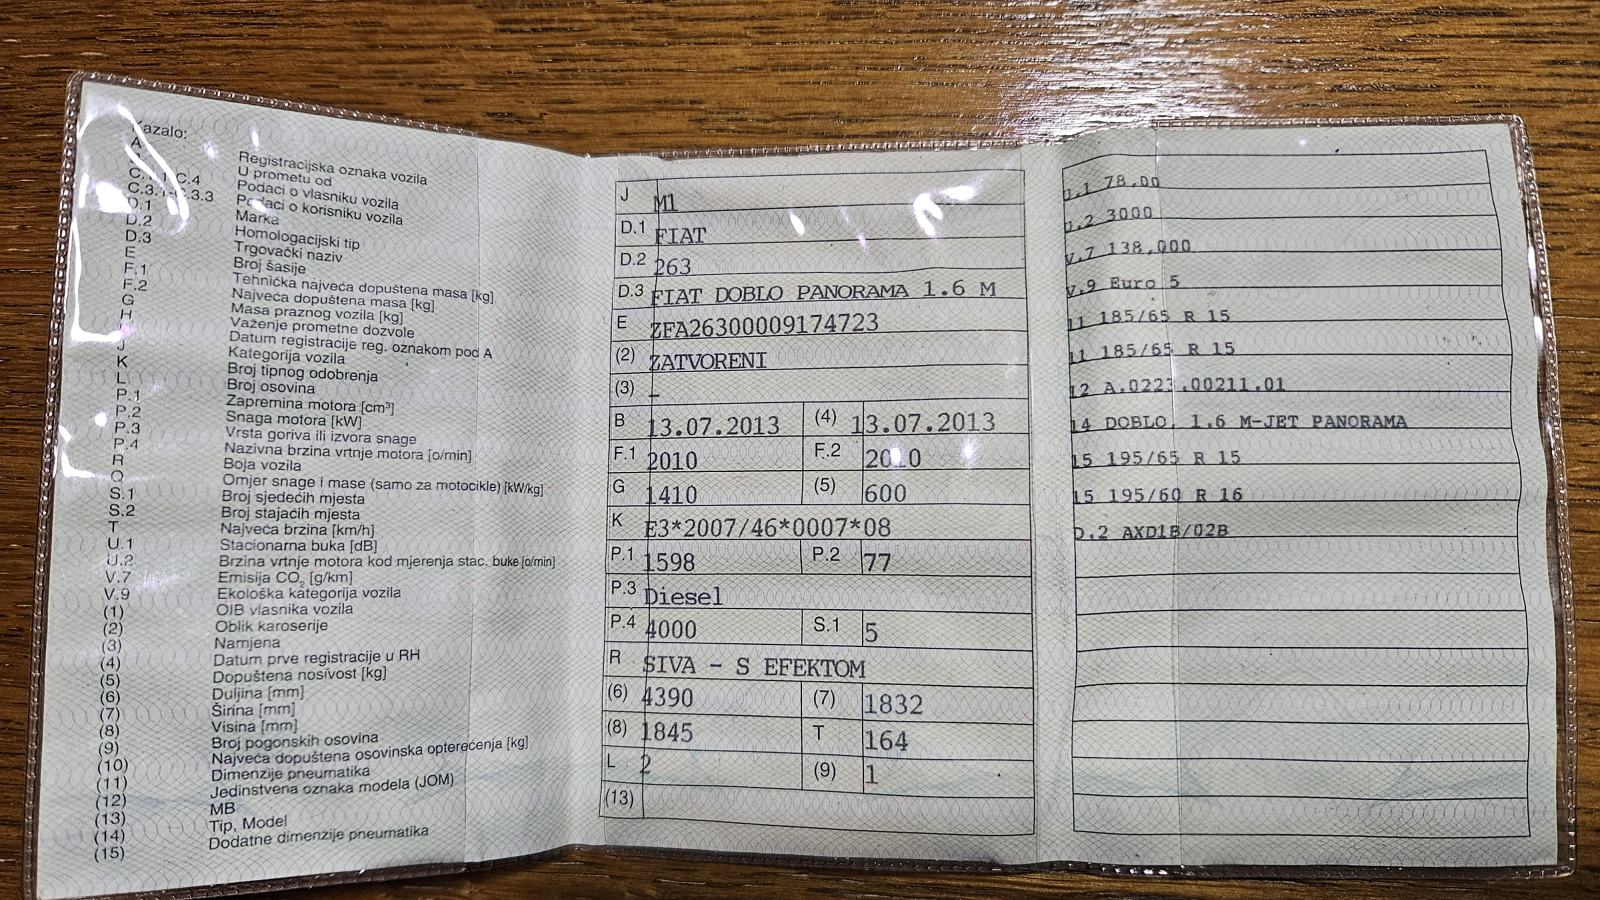 Kazalo:
A Registracijska oznaka vozila
U prometu od
C.4 Podaci o vlasniku vozila
C.3.1-C.3.3 Podaci o korisniku vozila
D.1 Marka
D.2 Homologacijski tip
D.3 Trgovački naziv
E Broj šasije
F.1 Tehnička najveća dopuštena masa [kg]
F.2 Najveća dopuštena masa [kg]
G Masa praznog vozila [kg]
H Važenje prometne dozvole
Datum registracije reg. oznakom pod A
J Kategorija vozila
K Broj tipnog odobrenja
L Broj osovina
P.1 Zapremina motora [cm³]
P.2 Snaga motora [kW]
P.3 Vrsta goriva ili izvora snage
P.4 Nazivna brzina vrtnje motora [o/min]
R Boja vozila
Q Omjer snage i mase (samo za motocikle) [kW/kg]
S.1 Broj sjedećih mjesta
S.2 Broj stajaćih mjesta
T Najveća brzina [km/h]
U.1 Stacionarna buka [dB]
U.2 Brzina vrtnje motora kod mjerenja stac. buke [o/min]
V.7 Emisija CO₂ [g/km]
V.9 Ekološka kategorija vozila
(1) OIB vlasnika vozila
(2) Oblik karoserije
(3) Namjena
(4) Datum prve registracije u RH
(5) Dopuštena nosivost [kg]
(6) Duljina [mm]
(7) Širina [mm]
(8) Visina [mm]
(9) Broj pogonskih osovina
(10) Najveća dopuštena osovinska opterećenja [kg]
(11) Dimenzije pneumatika
(12) Jedinstvena oznaka modela (JOM)
(13) MB
(14) Tip, Model
(15) Dodatne dimenzije pneumatika
J M1
D.1 FIAT
D.2 263
D.3 FIAT DOBLO PANORAMA 1.6 M
E ZFA26300009174723
(2) ZATVORENI
(3) –
B 13.07.2013 (4) 13.07.2013
F.1 2010 F.2 2010
G 1410 (5) 600
K E3*2007/46*0007*08
P.1 1598 P.2 77
P.3 Diesel
P.4 4000 S.1 5
R SIVA - S EFEKTOM
(6) 4390 (7) 1832
(8) 1845 T 164
L 2 (9) 1
(13)
U.1 78,00
U.2 3000
V.7 138,000
V.9 Euro 5
11 185/65 R 15
11 185/65 R 15
12 A.0223.00211.01
14 DOBLO, 1.6 M-JET PANORAMA
15 195/65 R 15
15 195/60 R 16
D.2 AXD1B/02B